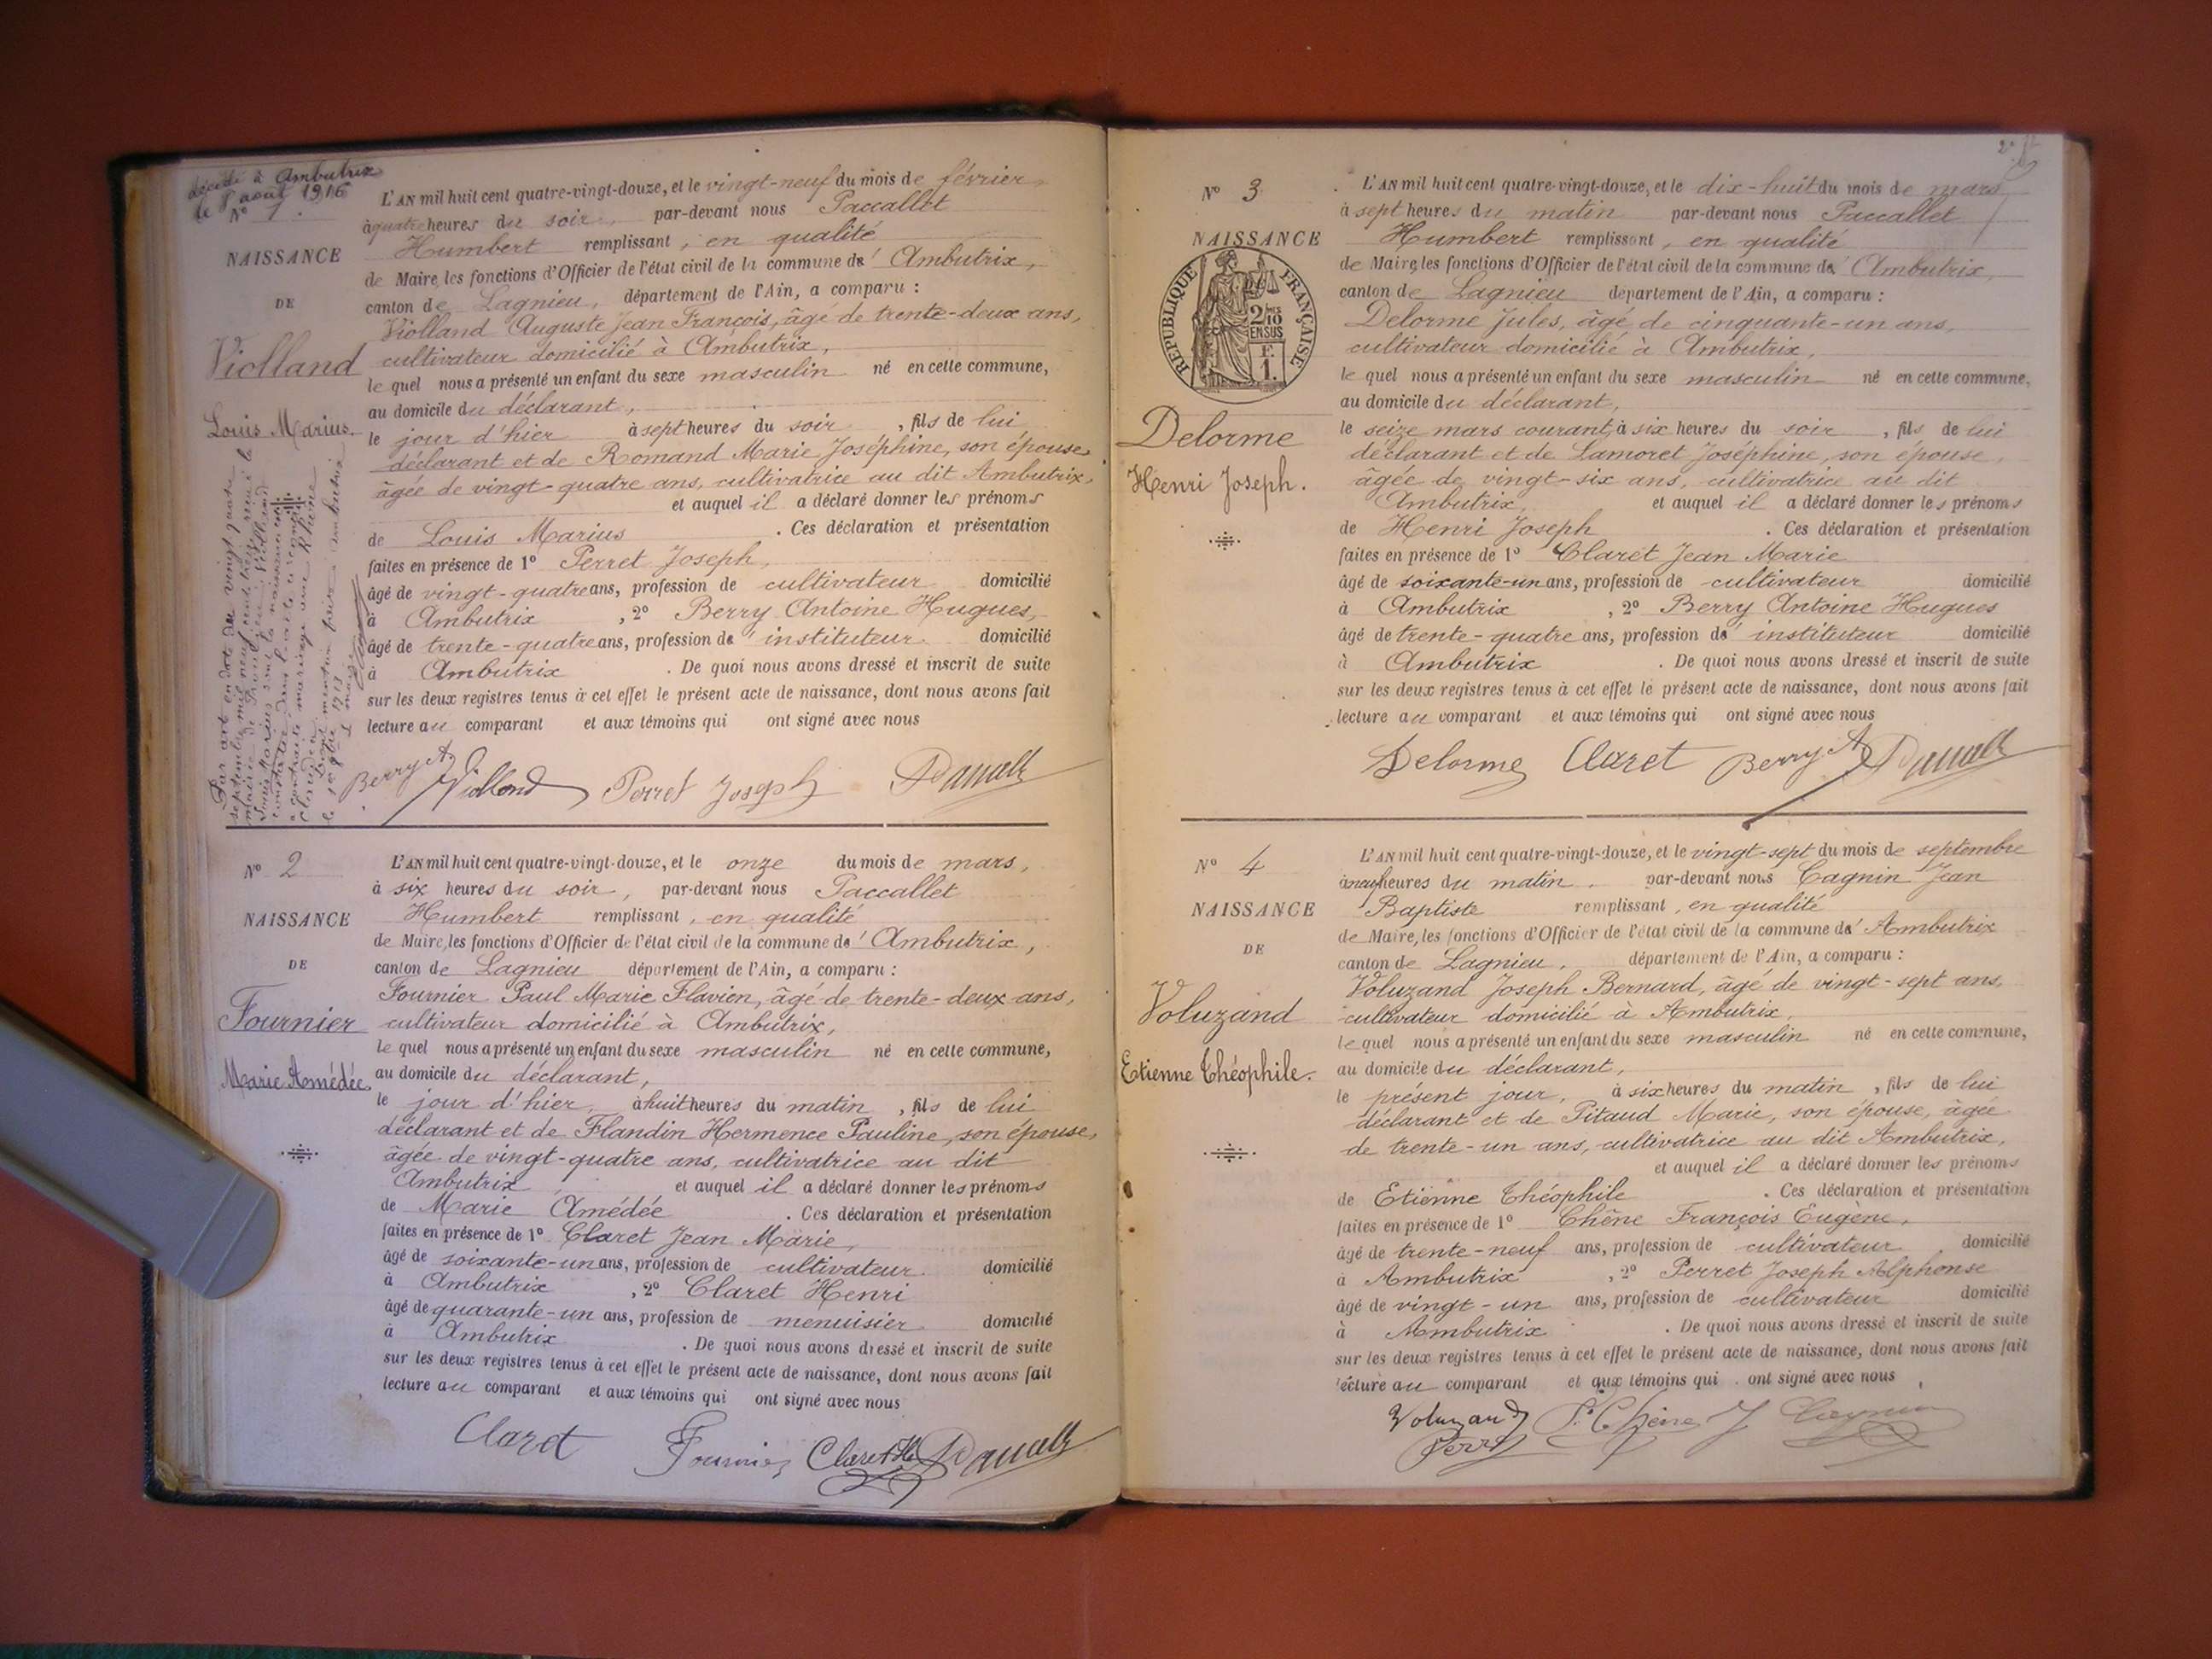 décédé à Ambutrix
le 8 août 1916
N° 1.
NAISSANCE
DE
Violland
Louis Marius.
L'AN mil huit cent quatre-vingt-douze, et le vingt-neuf du mois de février,
à quatre heures du soir, par-devant nous Paccallet
Humbert remplissant, en qualité
de Maire, les fonctions d'Officier de l'état civil de la commune d' Ambutrix,
canton de Lagnieu, département de l'Ain, a comparu :
Violland Auguste Jean François, âgé de trente-deux ans,
cultivateur domicilié à Ambutrix,
le quel nous a présenté un enfant du sexe masculin né en cette commune,
au domicile du déclarant,
le jour d'hier à sept heures du soir, fils de lui
déclarant et de Romand Marie Joséphine, son épouse,
âgée de vingt-quatre ans, cultivatrice au dit Ambutrix,
et auquel il a déclaré donner les prénoms
de Louis Marius. Ces déclaration et présentation
faites en présence de 1° Perret Joseph,
âgé de vingt-quatre ans, profession de cultivateur domicilié
à Ambutrix, 2° Berry Antoine Hugues,
âgé de trente-quatre ans, profession d' instituteur domicilié
à Ambutrix. De quoi nous avons dressé et inscrit de suite
sur les deux registres tenus à cet effet le présent acte de naissance, dont nous avons fait
lecture au comparant et aux témoins qui ont signé avec nous
Berry A. Violland Perret Joseph
N° 2
NAISSANCE
DE
Fournier
Marie Amédée.
L'AN mil huit cent quatre-vingt-douze, et le onze du mois de mars,
à six heures du soir, par-devant nous Paccallet
Humbert remplissant, en qualité
de Maire, les fonctions d'Officier de l'état civil de la commune d' Ambutrix,
canton de Lagnieu département de l'Ain, a comparu :
Fournier Paul Marie Flavien, âgé de trente-deux ans,
cultivateur domicilié à Ambutrix,
le quel nous a présenté un enfant du sexe masculin né en cette commune,
au domicile du déclarant,
le jour d'hier, à huit heures du matin, fils de lui
déclarant et de Flandin Hermence Pauline, son épouse,
âgée de vingt-quatre ans, cultivatrice au dit
Ambutrix et auquel il a déclaré donner les prénoms
de Marie Amédée. Ces déclaration et présentation
faites en présence de 1° Claret Jean Marie,
âgé de soixante-un ans, profession de cultivateur domicilié
à Ambutrix, 2° Claret Henri
âgé de quarante-un ans, profession de menuisier domicilié
à Ambutrix. De quoi nous avons dressé et inscrit de suite
sur les deux registres tenus à cet effet le présent acte de naissance, dont nous avons fait
lecture au comparant et aux témoins qui ont signé avec nous
Claret Fournier Claret H.
N° 3
NAISSANCE
DE
RÉPUBLIQUE FRANÇAISE
2/10 EN SUS
F. 1.
Delorme
Henri Joseph.
L'AN mil huit cent quatre-vingt-douze, et le dix-huit du mois de mars
à sept heures du matin par-devant nous Paccallet
Humbert remplissant, en qualité
de Maire, les fonctions d'Officier de l'état civil de la commune d' Ambutrix,
canton de Lagnieu département de l'Ain, a comparu :
Delorme Jules, âgé de cinquante-un ans,
cultivateur domicilié à Ambutrix,
le quel nous a présenté un enfant du sexe masculin né en cette commune,
au domicile du déclarant,
le seize mars courant, à six heures du soir, fils de lui
déclarant et de Lamoret Joséphine, son épouse,
âgée de vingt-six ans, cultivatrice au dit
Ambutrix, et auquel il a déclaré donner les prénoms
de Henri Joseph. Ces déclaration et présentation
faites en présence de 1° Claret Jean Marie
âgé de soixante-un ans, profession de cultivateur domicilié
à Ambutrix, 2° Berry Antoine Hugues
âgé de trente-quatre ans, profession d' instituteur domicilié
à Ambutrix. De quoi nous avons dressé et inscrit de suite
sur les deux registres tenus à cet effet le présent acte de naissance, dont nous avons fait
lecture au comparant et aux témoins qui ont signé avec nous
Delorme Claret Berry A
N° 4
NAISSANCE
DE
Voluzand
Etienne Théophile.
L'AN mil huit cent quatre-vingt-douze, et le vingt-sept du mois de septembre
à neuf heures du matin, par-devant nous Cagnin Jean
Baptiste remplissant, en qualité
de Maire, les fonctions d'Officier de l'état civil de la commune d' Ambutrix
canton de Lagnieu, département de l'Ain, a comparu :
Voluzand Joseph Bernard, âgé de vingt-sept ans,
cultivateur domicilié à Ambutrix,
le quel nous a présenté un enfant du sexe masculin né en cette commune,
au domicile du déclarant,
le présent jour, à six heures du matin, fils de lui
déclarant et de Pitaud Marie, son épouse, âgée
de trente-un ans, cultivatrice au dit Ambutrix,
et auquel il a déclaré donner les prénoms
de Etienne Théophile. Ces déclaration et présentation
faites en présence de 1° Chêne François Eugène,
âgé de trente-neuf ans, profession de cultivateur domicilié
à Ambutrix, 2° Perret Joseph Alphonse
âgé de vingt-un ans, profession de cultivateur domicilié
à Ambutrix. De quoi nous avons dressé et inscrit de suite
sur les deux registres tenus à cet effet le présent acte de naissance, dont nous avons fait
lecture au comparant et aux témoins qui ont signé avec nous
Voluzand Chêne J Cagnin
Perret